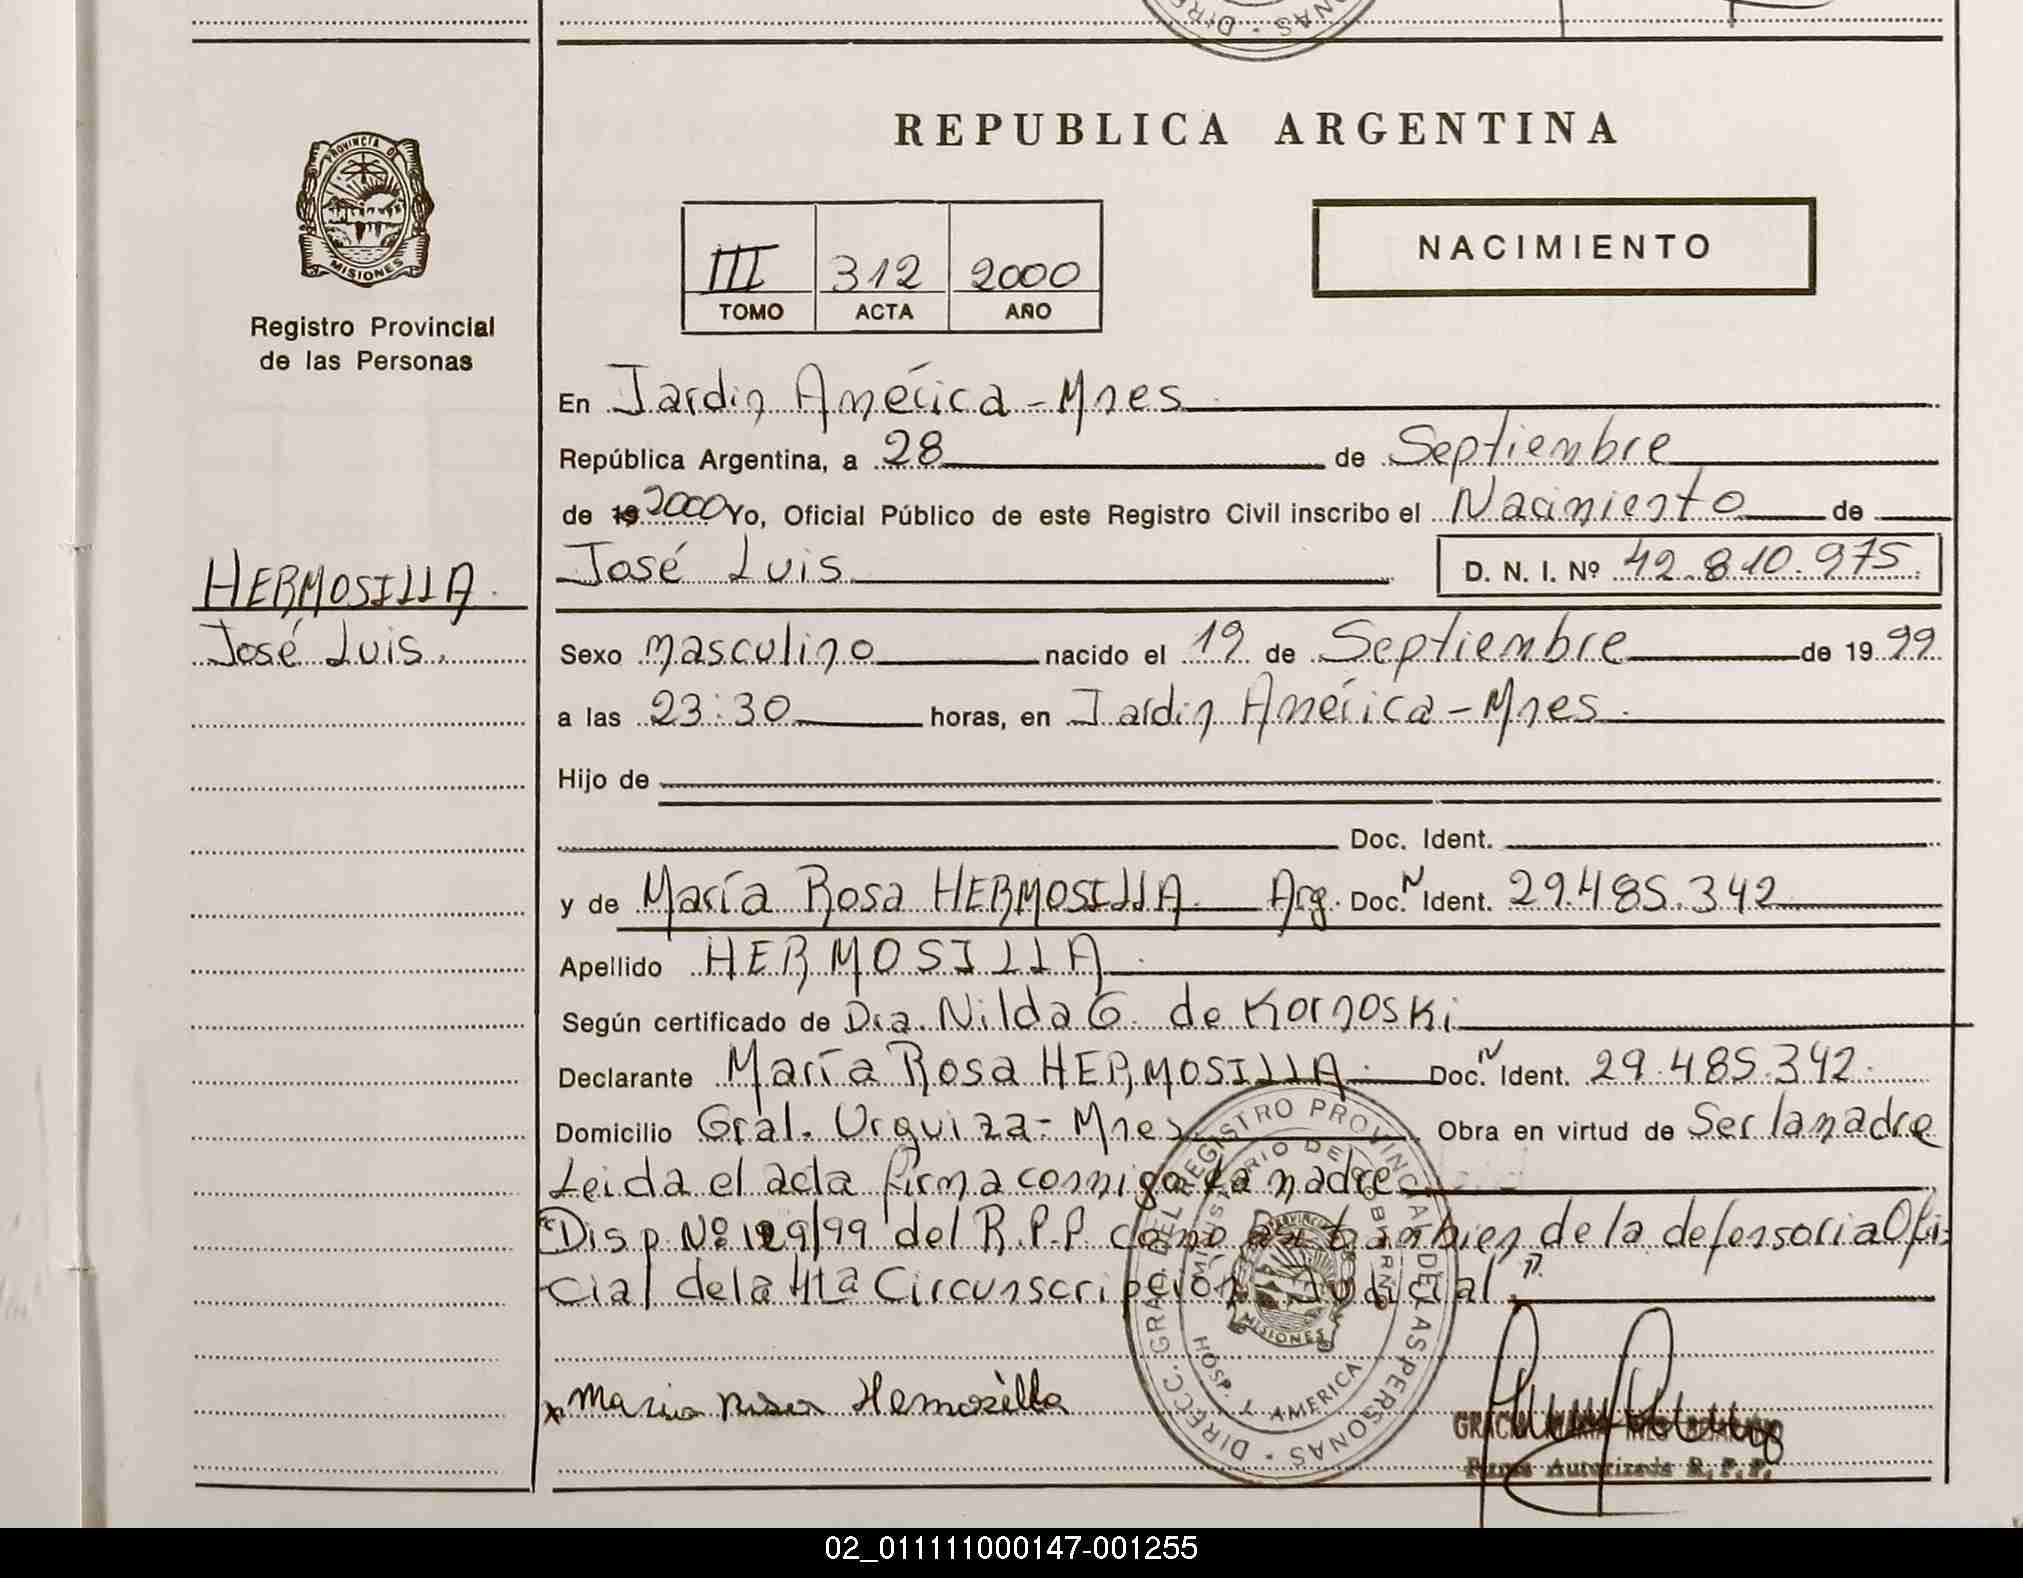 REPUBLICA ARGENTINA
PROVINCIA DE
MISIONES
Registro Provincial
de las Personas
III 312 2000
TOMO ACTA AÑO
NACIMIENTO
En Jardin América - Mnes
República Argentina, a 28 de Septiembre
de 19 2000 Yo, Oficial Público de este Registro Civil inscribo el Nacimiento de
José Luis D. N. I. Nº 42.810.975
HERMOSILLA.
José Luis.
Sexo masculino nacido el 19 de Septiembre de 19 99
a las 23:30 horas, en Jardin América - Mnes.
Hijo de
Doc. Ident.
y de María Rosa HERMOSILLA. Arg. Doc. N Ident. 29.485.342
Apellido HERMOSILLA.
Según certificado de Dra. Nilda G. de Kornoski
Declarante María Rosa HERMOSILLA. Doc. N Ident. 29.485.342.
Domicilio Gral. Urquiza - Mnes Obra en virtud de Ser la madre
Leida el acta firma conmigo la madre
"Disp Nº 129/99 del R.P.P como tambien de la defensoria Ofi-
cial de la 4ta Circunscripción Judicial."
x Maria Rosa Hemosilla
DIRECC. GRAL. DEL REGISTRO PROVINCIAL DE LAS PERSONAS
MINISTERIO DE GOBIERNO
HOSP. J. AMERICA
MISIONES
Firma Autorizada R. P. P.
02_011111000147-001255